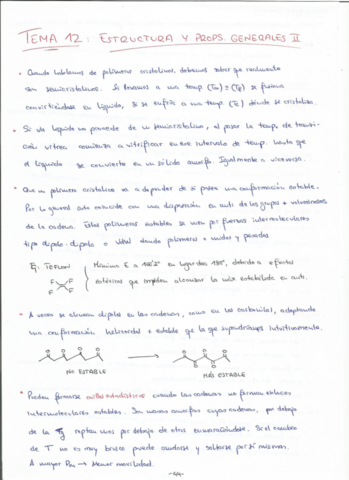 TEMA 12: ESTRUCTURA Y PROPS. GENERALES II
• Cuando hablamos de polímeros cristalinos, debemos saber que realmente
son semicristalinos. Si llevamos a una temp (Tm) = (Tf) se funden
convirtiéndose en líquido, si se enfría a una temp. (Tc) donde se cristaliza.
• Si ese líquido no proviene de un semicristalino, al pasar la temp. de transi-
ción vítrea comienza a vitrificar en ese intervalo de temp. hasta que
el líquido se convierte en un sólido amorfo. Igualmente a viceversa.
• Que un polímero cristalice va a depender de si posee una conformación estable.
Por lo general esto coincide con una disposición en anti de los grupos + voluminosos
de la cadena. Estos polímeros estables se unen por fuerzas intermoleculares
tipo dipolo-dipolo o VdW dando polímeros + unidos y pesados
Ej: TEFLÓN
F F
F F
Mínima E a en lugar de 180°, debido a efectos
estéricos que impiden alcanzar la más estable en anti.
• A veces se alinean dipolos en las cadenas, como en los carbonilos, adoptando
una conformación helicoidal + estable que la que supondríamos intuitivamente.
O O O O
O O O O
NO ESTABLE
MÁS ESTABLE
• Pueden formarse cuando las cadenas no forman enlaces
intermoleculares estables. Son zonas amorfas cuyas cadenas, por debajo
de la Tg reptan unas por debajo de otras enmarañándose. Si el cambio
de T no es muy brusco puede anudarse y soltarse por sí mismas.
A mayor Pm → Menor movilidad.
-44-